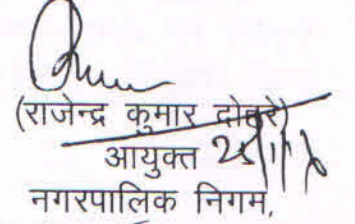 (राजेन्द्र कुमार दोहरे)
आयुक्त
नगरपालिक निगम,